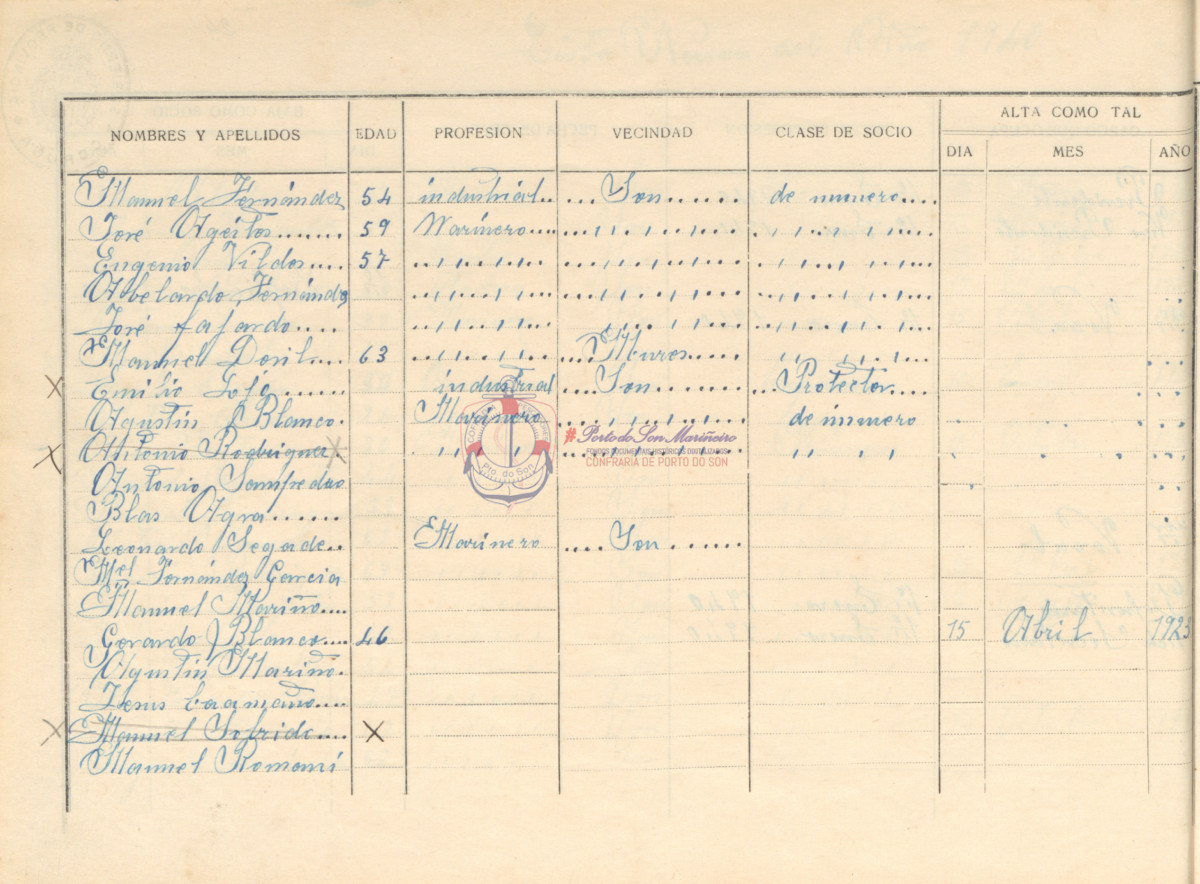 NOMBRES Y APELLIDOS EDAD PROFESION VECINDAD CLASE DE SOCIO ALTA COMO TAL
DIA MES AÑO
Manuel Fernández 54 industrial Son de numero
José Ageitos 59 Marinero
Eugenio Vildos 57
Abelardo Fernández
José fajardo
Manuel 63 Mures
Emilio industrial Son Protector
Agustín Blanco Marinero de número
Antonio Rodriguez
Antonio Sampedro
Blas Agra
Leonardo Segade Marinero Son
Mel Fernández Garcia
Manuel Mariño
Gerardo Blanco 46 15 Abril 1923
Agustín Mariño
Jesus Caamaño
Manuel
Manuel Romaní
#Porto do Son Mariñeiro
FONDOS DOCUMENTAIS HISTÓRICOS DIXITALIZADOS
CONFRARÍA DE PORTO DO SON
Pto. do Son